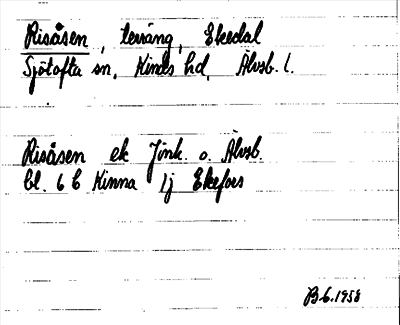 Risåsen, terräng, Ekedal
Sjötofta sn, Kinds hd, Älvsb. l.
Risåsen ek Jönk. o. Älvsb.
bl. 6 b Kinna 1j Ekefors
B.6.1958